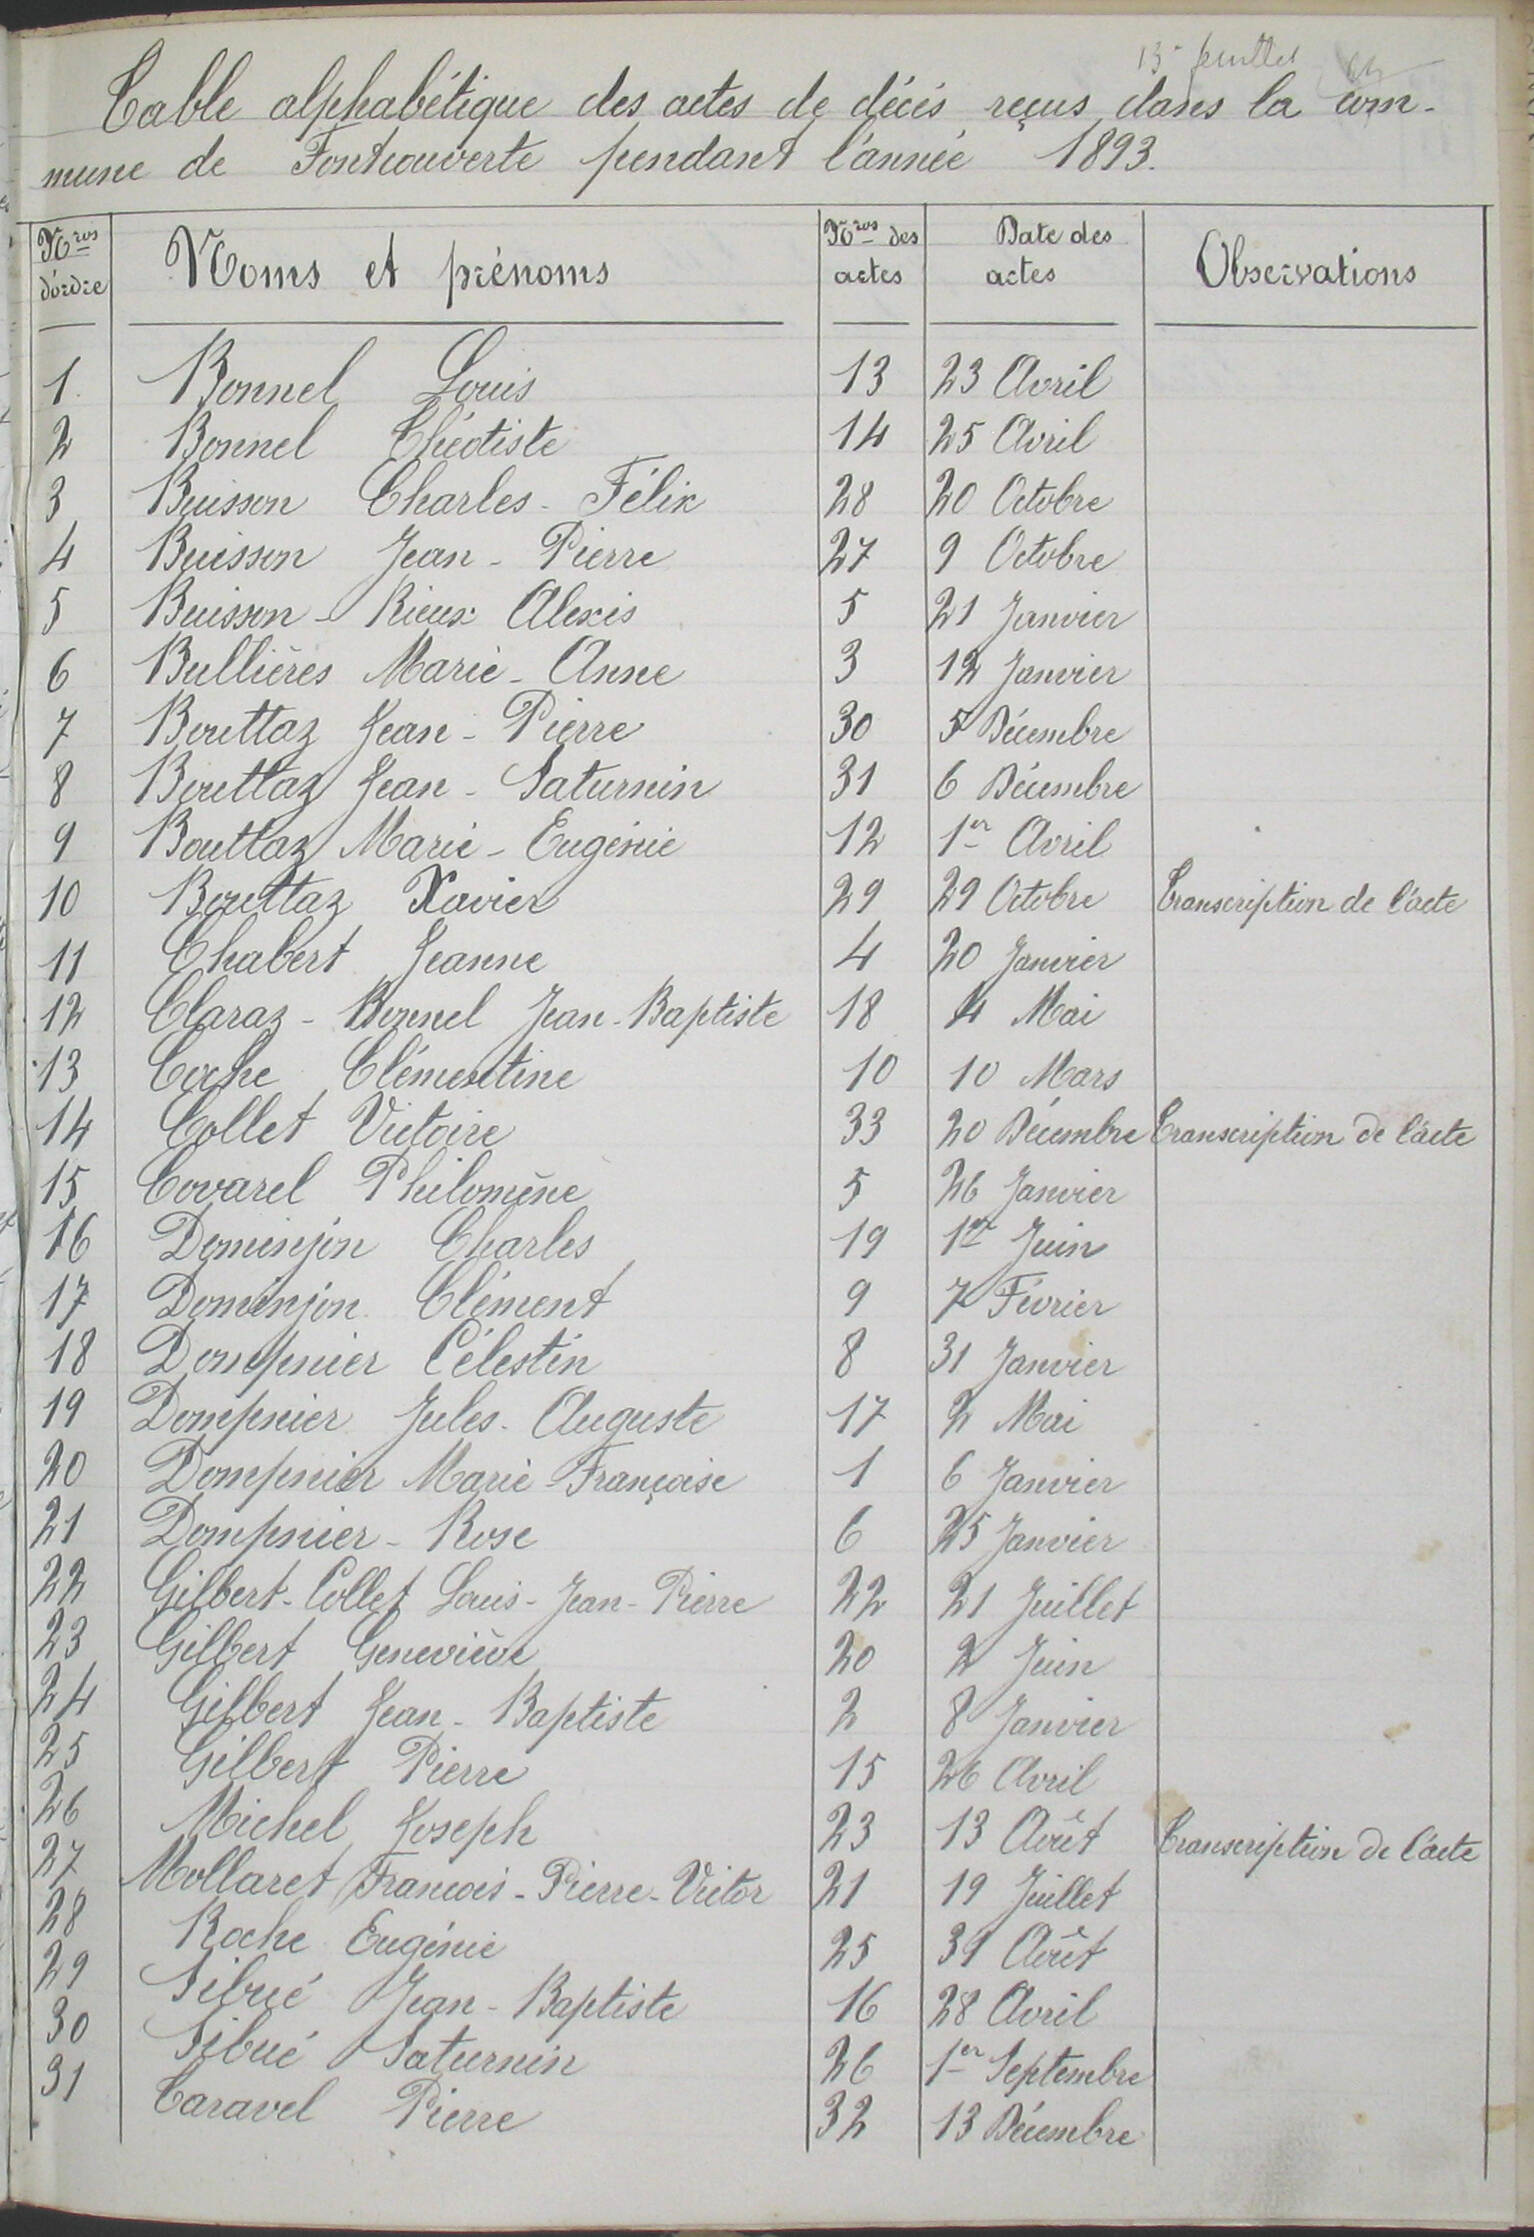 13e feuillet
Table alphabétique des actes de décès reçus dans la com-
mune de Fontcouverte pendant l'année 1893.
Nros d'ordre Noms et prénoms Nros des actes Date des actes Observations
1 Bonnel Louis 13 23 Avril
2 Bonnel Théotiste 14 25 Avril
3 Buisson Charles-Félix 28 20 Octobre
4 Buisson Jean-Pierre 27 9 Octobre
5 Buisson-Rieux Alexis 5 21 Janvier
6 Bullières Marie-Anne 3 12 Janvier
7 Bouttaz Jean-Pierre 30 5 Décembre
8 Bouttaz Jean-Saturnin 31 6 Décembre
9 Bouttaz Marie-Eugénie 12 1er Avril
10 Bouttaz Xavier 29 29 Octobre Transcription de l'acte
11 Chabert Jeanne 4 20 Janvier
12 Claraz-Bonnel Jean-Baptiste 18 4 Mai
13 Coche Clémentine 10 10 Mars
14 Collet Victoire 33 20 Décembre Transcription de l'acte
15 Covarel Philomène 5 26 Janvier
16 Dominjon Charles 19 1er Juin
17 Dominjon Clément 9 7 Février
18 Dompnier Célestin 8 31 Janvier
19 Dompnier Jules-Auguste 17 2 Mai
20 Dompnier Marie-Françoise 1 6 Janvier
21 Dompnier-Rose 6 25 Janvier
22 Gilbert-Collet Louis-Jean-Pierre 22 21 Juillet
23 Gilbert Geneviève 20 2 Juin
24 Gilbert Jean-Baptiste 2 8 Janvier
25 Gilbert Pierre 15 26 Avril
26 Michel Joseph 23 13 Août Transcription de l'acte
27 Mollaret François-Pierre-Victor 21 19 Juillet
28 Roche Eugénie 25 31 Août
29 Sibué Jean-Baptiste 16 28 Avril
30 Sibué Saturnin 26 1er Septembre
31 Taravel Pierre 32 13 Décembre